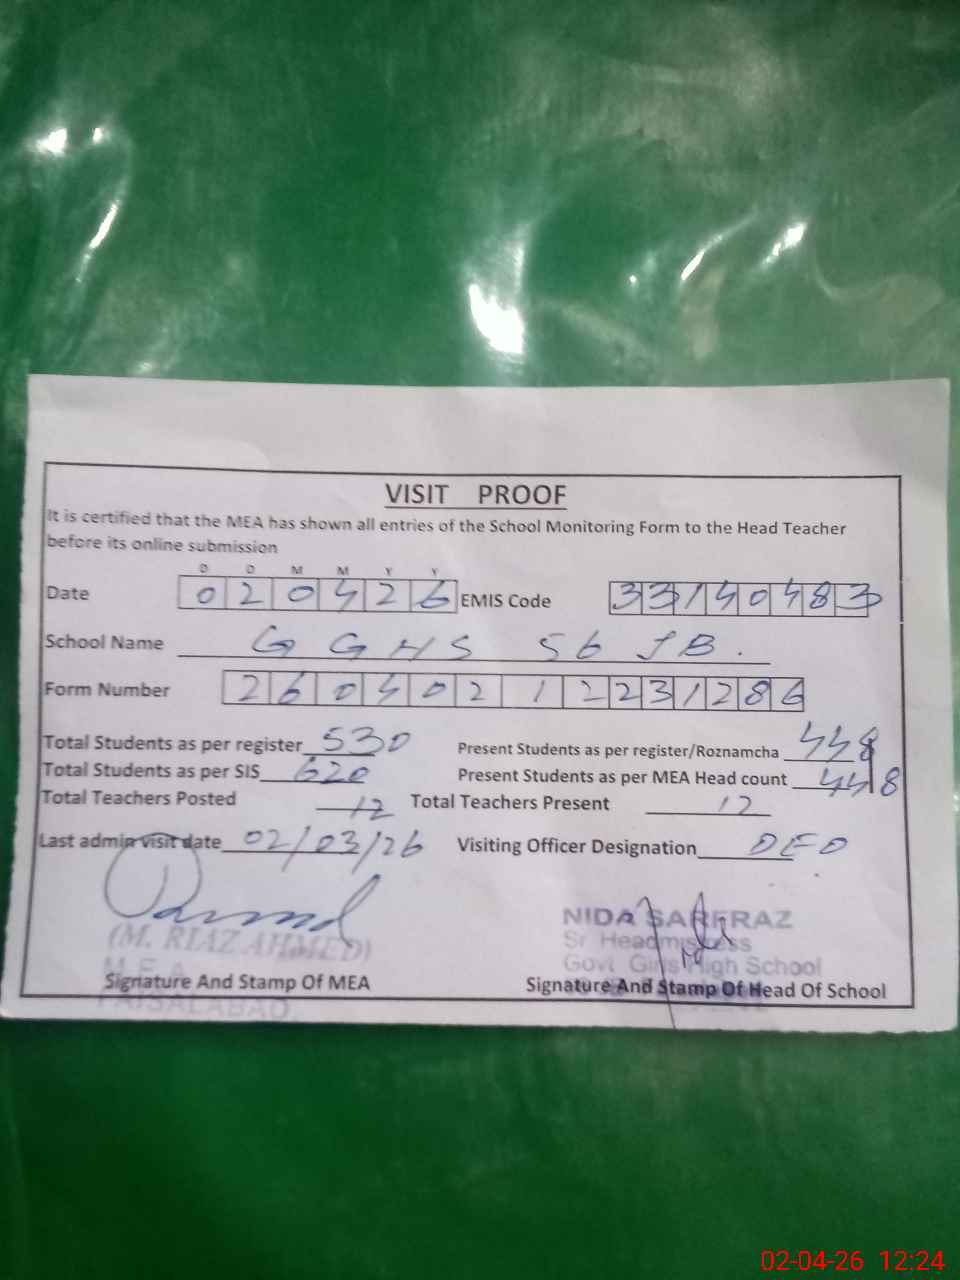 VISIT PROOF
It is certified that the MEA has shown all entries of the School Monitoring Form to the Head Teacher
before its online submission
D D M M Y Y
Date 020426 EMIS Code 33140483
School Name GGHS 56 JB.
Form Number 26040212231286
Total Students as per register 530 Present Students as per register/Roznamcha 448
Total Students as per SIS 620 Present Students as per MEA Head count 448
Total Teachers Posted 12 Total Teachers Present 12
Last admin visit date 02/03/26 Visiting Officer Designation DEO
(M. RIAZ AHMED) NIDA SARFRAZ
M.E.A Sr Headmistress
Govt Girls High School
Signature And Stamp Of MEA Signature And Stamp Of Head Of School
FAISALABAD.
02-04-26 12:24